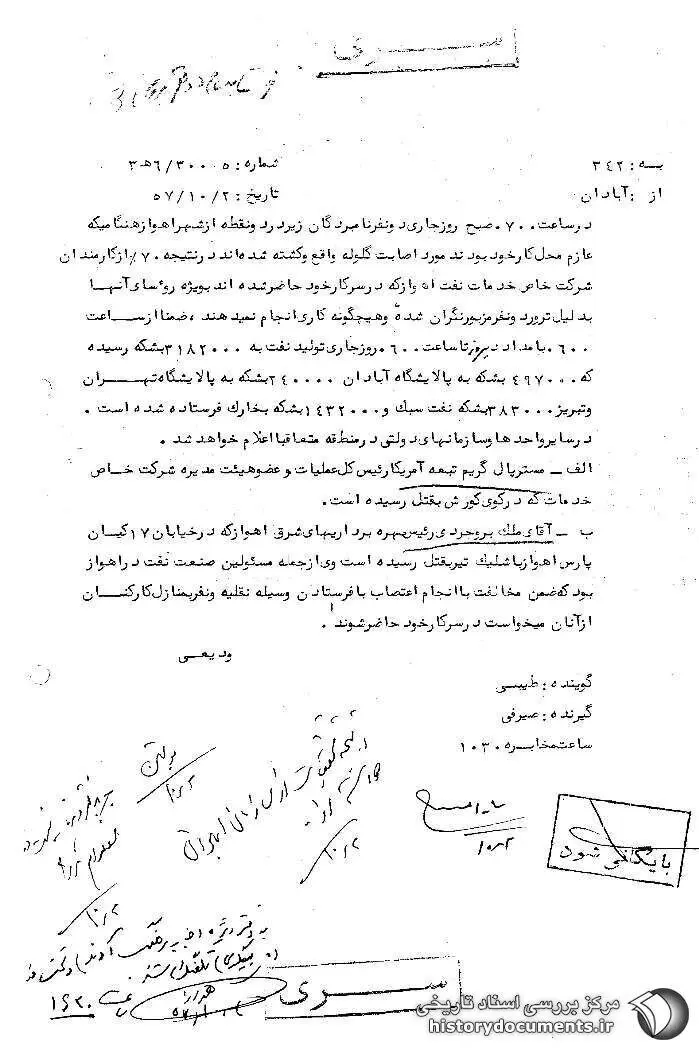 ســری
به : ۳۴۲
شماره : ۳۰۰۵/۶هـ۳
از : آبادان
تاریخ : ۵۷/۱۰/۲
در ساعت ۷۰۰ صبح روز جاری دو نفر نامبردگان زیر در دو نقطه از شهر اهواز هنگامیکه
عازم محل کار خود بودند مورد اصابت گلوله واقع و کشته شده‌اند در نتیجه ۷۰٪ از کارمندان
شرکت خاص خدمات نفت اهواز که در سر کار خود حاضر شده اند بویژه روسای آنها
بدلیل ترور دو نفر مزبور نگران شده و هیچگونه کاری انجام نمیدهند ، ضمنا از ساعت
۶۰۰ بامداد دیروز تا ساعت ۶۰۰ روز جاری تولید نفت به ۳۱۸۲۰۰۰ بشکه رسیده
که ۴۹۷۰۰۰ بشکه به پالایشگاه آبادان ۲۴۰۰۰۰ بشکه به پالایشگاه تهران
و تبریز ۳۸۳۰۰۰ بشکه نفت سبک و ۱۴۳۲۰۰۰ بشکه بخارک فرستاده شده است .
در سایر واحدها و سازمانهای دولتی در منطقه متعاقبا اعلام خواهد شد .
الف ــ مستر پال گریم تبعه آمریکا رئیس کل عملیات و عضو هیئت مدیره شرکت خاص
خدمات که در کوی کورش بقتل رسیده است .
ب ــ آقای ملک بروجردی رئیس بهره برداریهای شرق اهواز که در خیابان ۱۷ کیان
پارس اهواز با شلیک تیر بقتل رسیده است وی از جمله مسئولین صنعت نفت در اهواز
بود که ضمن مخالفت با انجام اعتصاب با فرستادن وسیله نقلیه و نفر بمنازل کارکنان
از آنان میخواست در سر کار خود حاضر شوند .
ودیعی
گوینده : طیبسی
گیرنده : صیرفی
ساعت مخابره ۱۰۳۰
بایگانی شود
۱۰/۲
۱۰/۲
۱۰/۲
ســری
مرکز بررسی اسناد تاریخی
historydocuments.ir